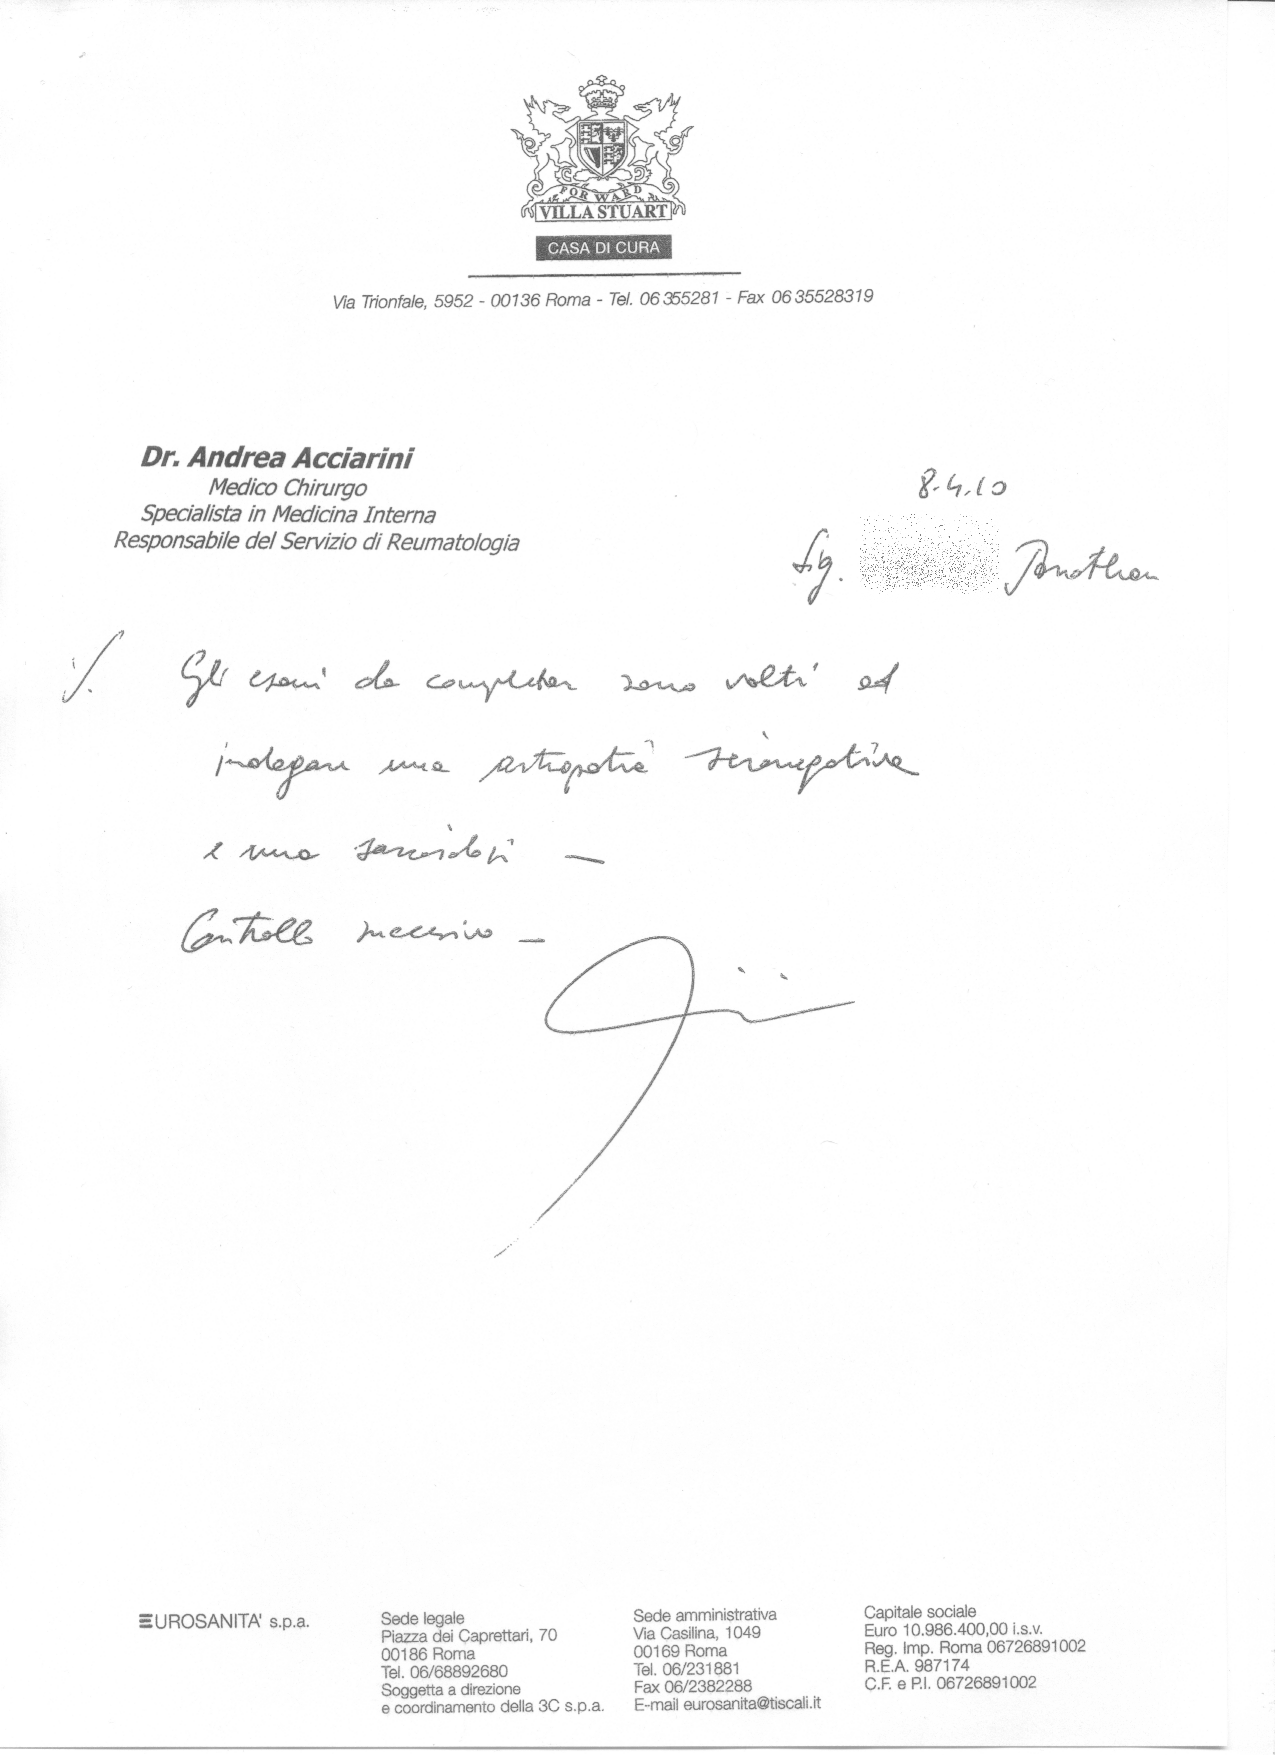 FORWARD
VILLA STUART
CASA DI CURA
Via Trionfale, 5952 - 00136 Roma - Tel. 06 355281 - Fax 06 35528319
Dr. Andrea Acciarini
Medico Chirurgo
Specialista in Medicina Interna
Responsabile del Servizio di Reumatologia
8.4.10
Sig. Jonathan
Gli esami da completare sono volti ad
indagare una artropatia sieronegativa
e una sarcoidosi -
Controllo successivo -
EUROSANITA' s.p.a.
Sede legale
Piazza dei Caprettari, 70
00186 Roma
Tel. 06/68892680
Soggetta a direzione
e coordinamento della 3C s.p.a.
Sede amministrativa
Via Casilina, 1049
00169 Roma
Tel. 06/231881
Fax 06/2382288
E-mail eurosanita@tiscali.it
Capitale sociale
Euro 10.986.400,00 i.s.v.
Reg. Imp. Roma 06726891002
R.E.A. 987174
C.F. e P.I. 06726891002